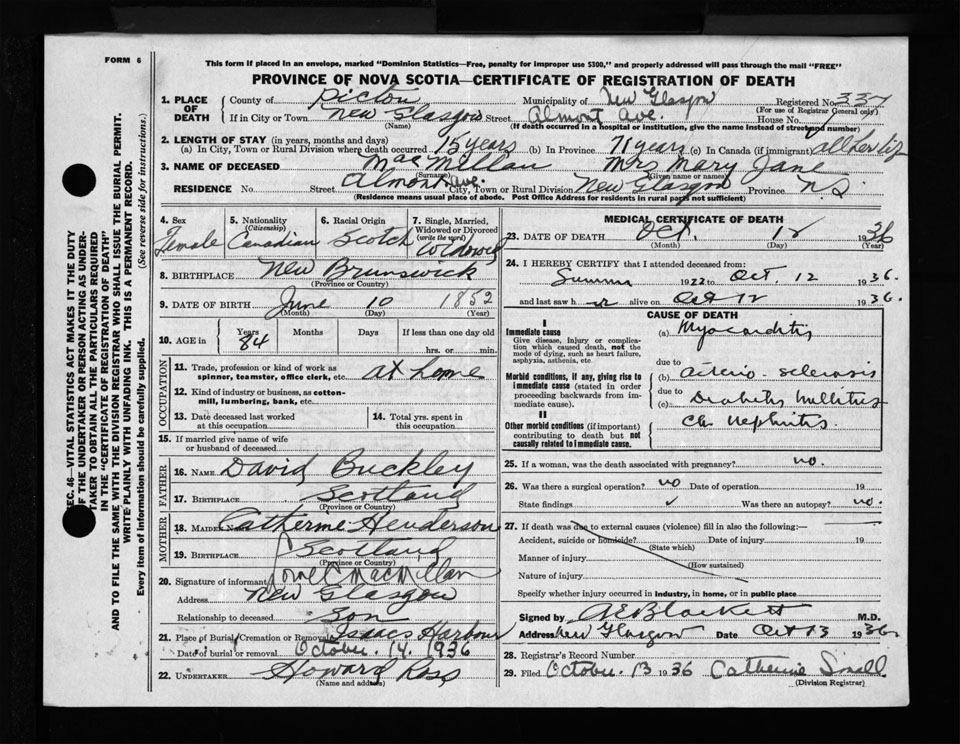 FORM 6
This form if placed in an envelope, marked "Dominion Statistics—Free, penalty for improper use $300," and properly addressed will pass through the mail "FREE"
PROVINCE OF NOVA SCOTIA—CERTIFICATE OF REGISTRATION OF DEATH
1. PLACE OF DEATH County of Pictou Municipality of New Glasgow Registered No. 337
(For use of Registrar General only)
If in City or Town New Glasgow Street Almont Ave. House No.
(Name) (If death occurred in a hospital or institution, give the name instead of street and number)
2. LENGTH OF STAY (in years, months and days)
(a) In City, Town or Rural Division where death occurred 15 years (b) In Province 71 years (c) In Canada (if immigrant) all her life
3. NAME OF DECEASED MacMillan Mrs Mary Jane
(Surname) (Given name or names)
RESIDENCE No. Street Almont Ave. City, Town or Rural Division New Glasgow Province N.S.
(Residence means usual place of abode. Post Office Address for residents in rural parts not sufficient)
4. Sex 5. Nationality 6. Racial Origin 7. Single, Married,
(Citizenship) Widowed or Divorced
(write the word)
Female Canadian Scotch Widowed
8. BIRTHPLACE New Brunswick
(Province or Country)
9. DATE OF BIRTH June 10 1852
(Month) (Day) (Year)
10. AGE in Years Months Days If less than one day old
84 hrs. or min.
OCCUPATION
11. Trade, profession or kind of work as
spinner, teamster, office clerk, etc. at home
12. Kind of industry or business, as cotton-
mill, lumbering, bank, etc.
13. Date deceased last worked
at this occupation
14. Total yrs. spent in
this occupation
15. If married give name of wife
or husband of deceased
FATHER
16. NAME David Buckley
17. BIRTHPLACE Scotland
(Province or Country)
MOTHER
18. MAIDEN NAME Catherine Henderson
19. BIRTHPLACE Scotland
(Province or Country)
20. Signature of informant C MacMillan
Address New Glasgow
Relationship to deceased Son
21. Place of Burial, Cremation or Removal Isaacs Harbour
Date of burial or removal October. 14. 1936
22. UNDERTAKER Howard Ross
(Name and address)
MEDICAL CERTIFICATE OF DEATH
23. DATE OF DEATH Oct. 12 1936
(Month) (Day) (Year)
24. I HEREBY CERTIFY that I attended deceased from:
Summer 1922 to Oct. 12 1936.
and last saw her alive on Oct 12 1936.
CAUSE OF DEATH
I
Immediate cause (a) Myocarditis
Give disease, injury or complica-
tion which caused death, not the
mode of dying, such as heart failure,
asphyxia, asthenia, etc.
due to
Morbid conditions, if any, giving rise to (b) arterio-sclerosis
immediate cause (stated in order
proceeding backwards from im-
mediate cause).
due to
(c) Diabetes Mellitus
II
Other morbid conditions (if important) Chr nephritis
contributing to death but not
causally related to immediate cause.
25. If a woman, was the death associated with pregnancy? no.
26. Was there a surgical operation? no Date of operation 19
State findings Was there an autopsy? no.
27. If death was due to external causes (violence) fill in also the following:—
Accident, suicide or homicide? Date of injury 19
(State which)
Manner of injury
(How sustained)
Nature of injury
Specify whether injury occurred in industry, in home, or in public place
Signed by A E Blackett M.D.
Address New Glasgow Date Oct 13 1936
28. Registrar's Record Number
29. Filed October. 13 1936 Catherine
(Division Registrar)
SEC. 46—VITAL STATISTICS ACT MAKES IT THE DUTY
OF THE UNDERTAKER OR PERSON ACTING AS UNDER-
TAKER TO OBTAIN ALL THE PARTICULARS REQUIRED
IN THE "CERTIFICATE OF REGISTRATION OF DEATH"
AND TO FILE THE SAME WITH THE DIVISION REGISTRAR WHO SHALL ISSUE THE BURIAL PERMIT.
WRITE PLAINLY WITH UNFADING INK. THIS IS A PERMANENT RECORD.
Every item of information should be carefully supplied. (See reverse side for instructions.)